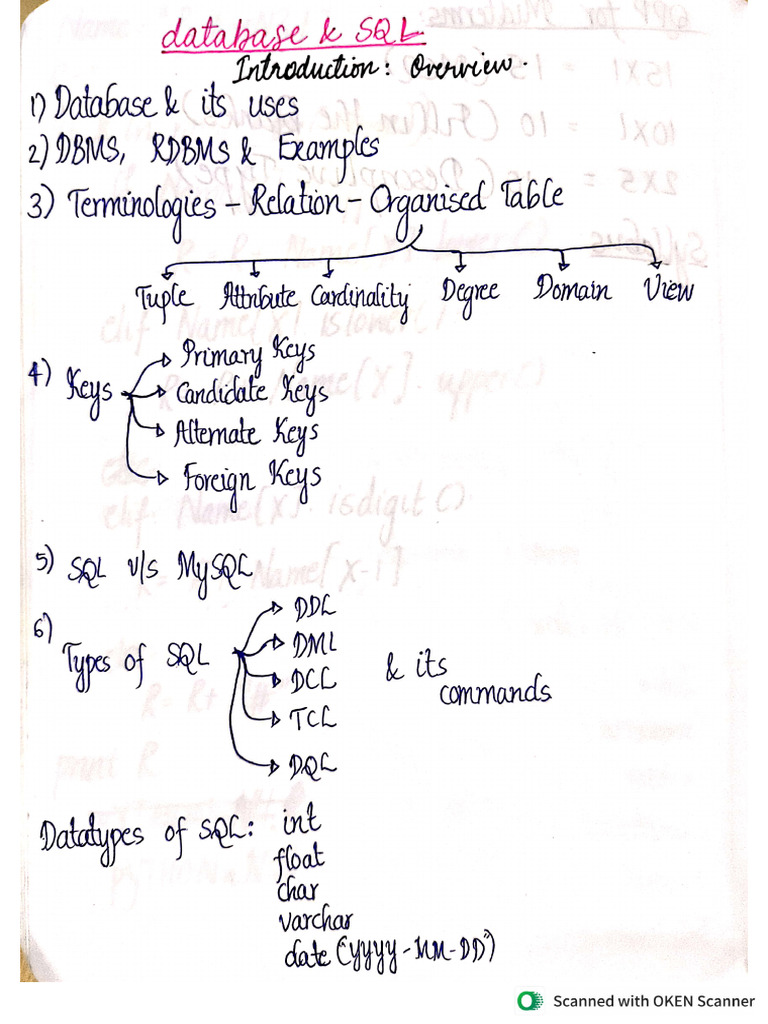 database & SQL
Introduction: Overview.
1) Database & its uses
2) DBMS, RDBMS & Examples
3) Terminologies - Relation - Organised Table
Tuple Attribute Cardinality Degree Domain View
4) Keys
Primary Keys
Candidate Keys
Alternate Keys
Foreign Keys
5) SQL v/s MySQL
6) Types of SQL
DDL
DML
DCL
TCL
DQL
& its
commands
Datatypes of SQL: int
float
char
varchar
date ("YYYY-MM-DD")
Scanned with OKEN Scanner